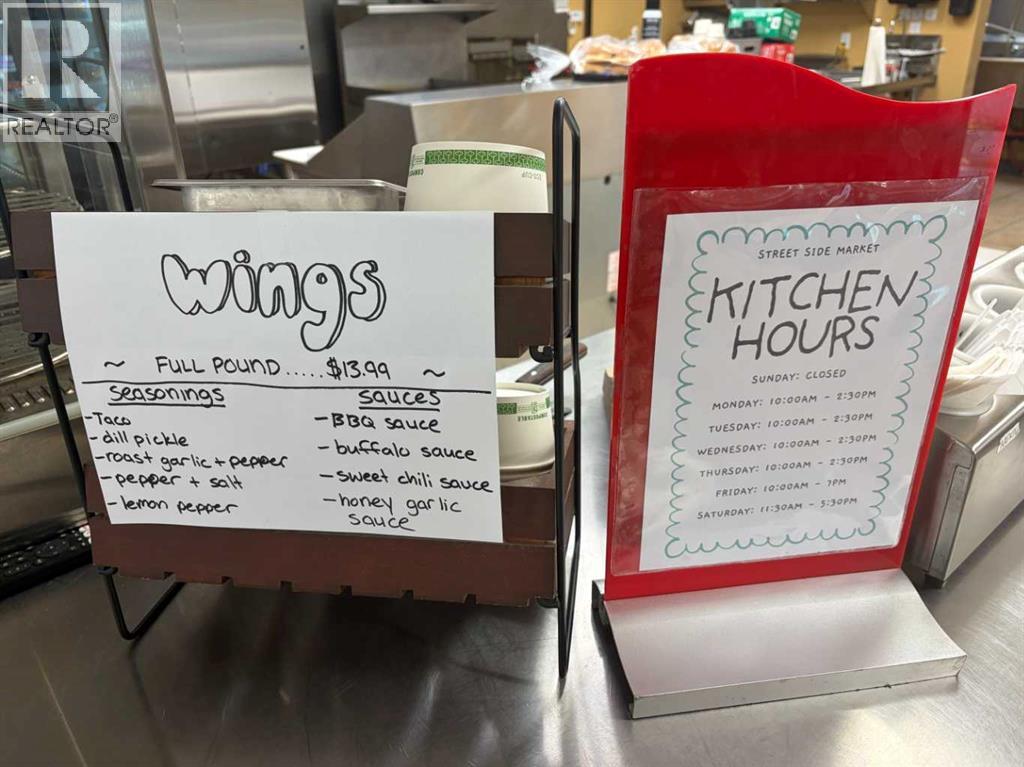 REALTOR®
wings
~ FULL POUND.....$13.99 ~
Seasonings
-Taco
-dill pickle
-roast garlic + pepper
-pepper + salt
-lemon pepper
sauces
-BBQ sauce
-buffalo sauce
-sweet chili sauce
-honey garlic
sauce
ECO-CUP
COMPOSTABLE
STREET SIDE MARKET
KITCHEN
HOURS
SUNDAY: CLOSED
MONDAY: 10:00AM - 2:30PM
TUESDAY: 10:00AM - 2:30PM
WEDNESDAY: 10:00AM - 2:30PM
THURSDAY: 10:00AM - 2:30PM
FRIDAY: 10:00AM - 7PM
SATURDAY: 11:30AM - 5:30PM